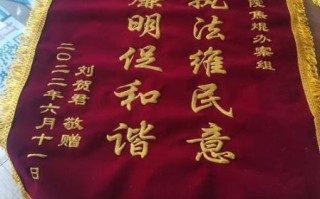 办案组
执法维民意
廉明促和谐
刘贺君 敬赠
二〇二二年六月十一日